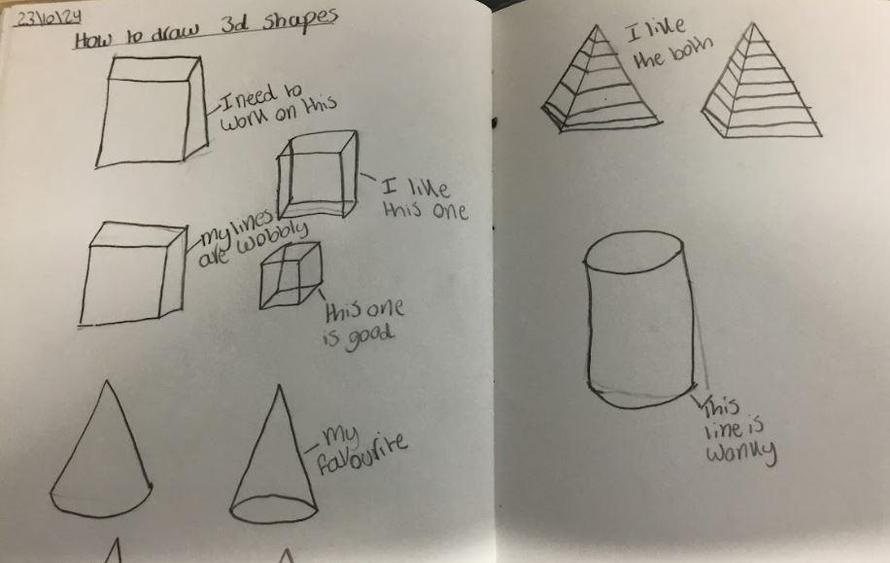 23/10/24
How to draw 3d shapes
I need to
work on this
I like
this one
my lines
are wobbly
this one
is good
my
favourite
I like
the both
This
line is
wonky